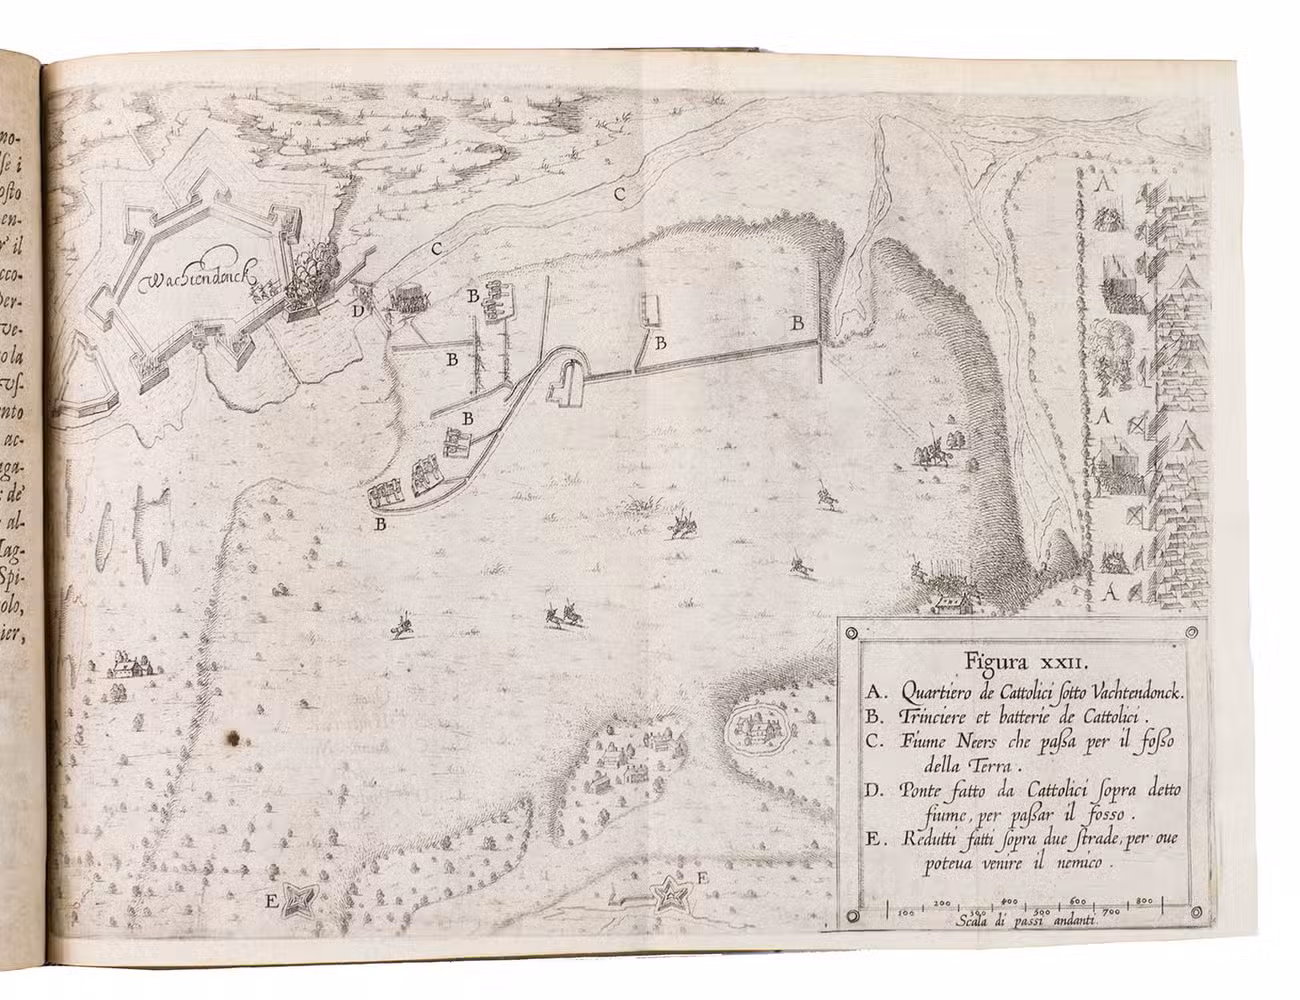 no-
se i
osto
en-
r' il
cco-
Per-
ve-
ola
vs-
nto
ac-
aga-
de'
al-
Mag-
Spi-
olo,
ier,
Wachtendonck
C
C
D
B
B
B
B
B
B
A
A
A
E
E
Figura XXII.
A. Quartiero de Cattolici ſotto Vachtendonck.
B. Trinciere et batterie de Cattolici.
C. Fiume Neers che paſsa per il foſso
della Terra.
D. Ponte fatto da Cattolici ſopra detto
fiume, per paſsar il fosso.
E. Redutti fatti ſopra due ſtrade, per oue
poteua venire il nemico.
100 200 300 400 500 600 700 800
Scala di passi andanti.